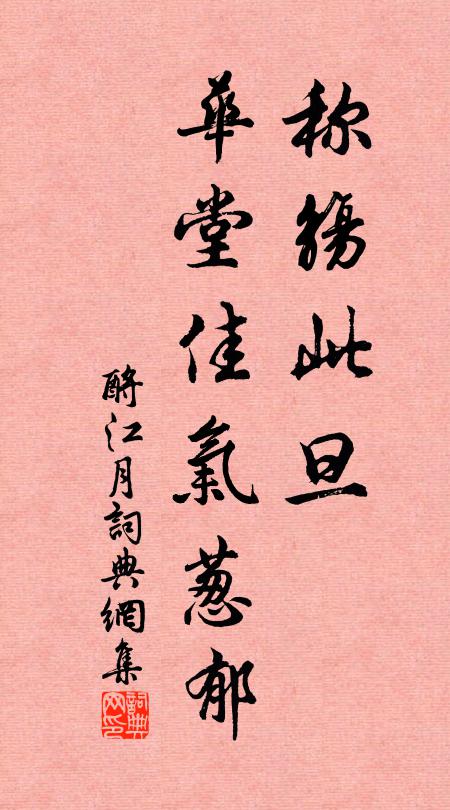 称觴此旦
華堂佳氣葱郁
酹江月詞典網集
詞典网印